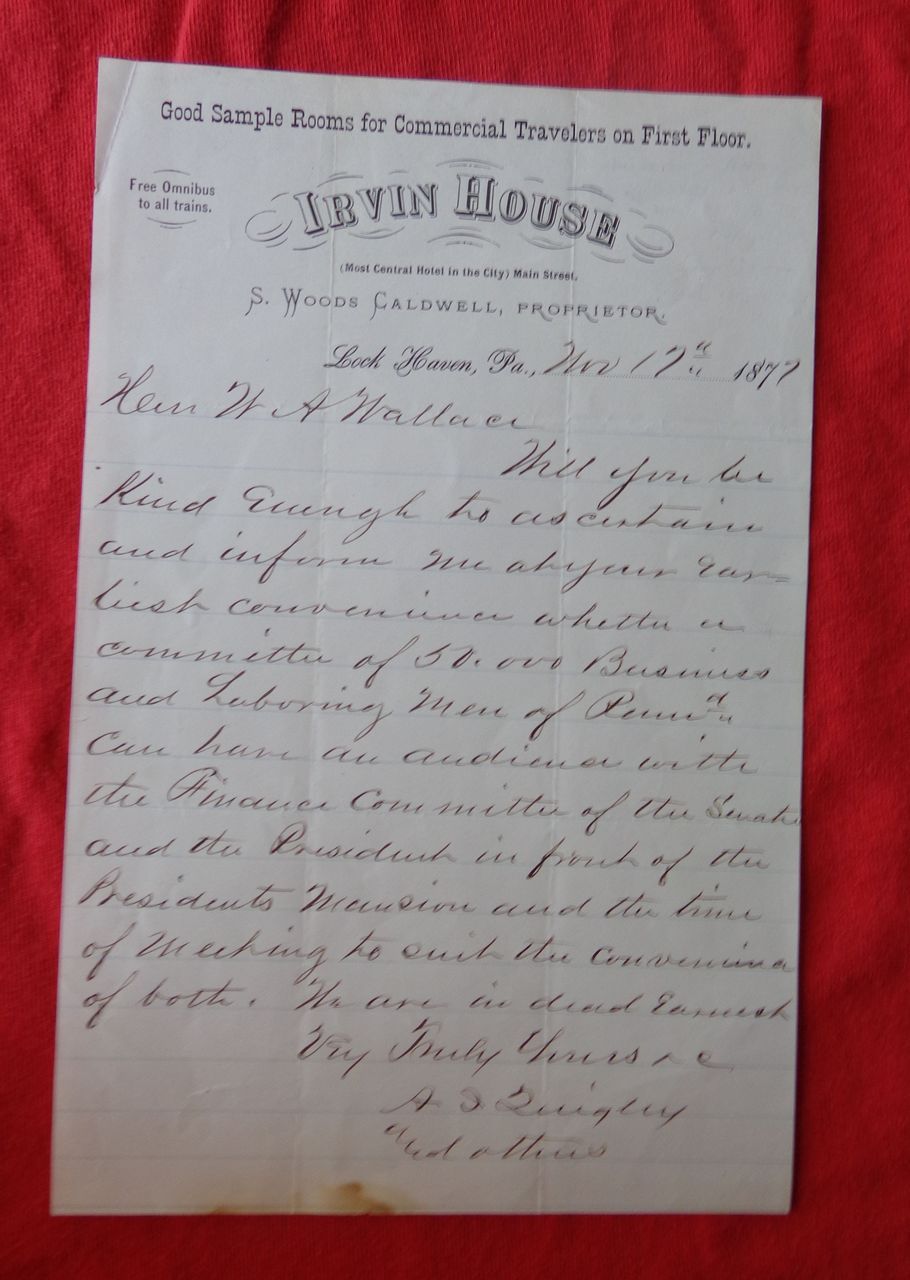 Good Sample Rooms for Commercial Travelers on First Floor.
Free Omnibus
to all trains.
IRVIN HOUSE
(Most Central Hotel in the City) Main Street.
S. WOODS CALDWELL, PROPRIETOR.
Lock Haven, Pa., Nov 17th 1877
Hon W A Wallace
Will you be
Kind Enough to ascertain
and inform me at your Ear=
liest convenience whether a
committee of 50.000 Business
and Laboring Men of Penna
can have an audience with
the Finance Committee of the Senate
and the President in front of the
Presidents Mansion and the time
of Meeting to suit the convenience
of both. We are in dead Earnest
Very Truly Yours &c
A S Quigley
and others